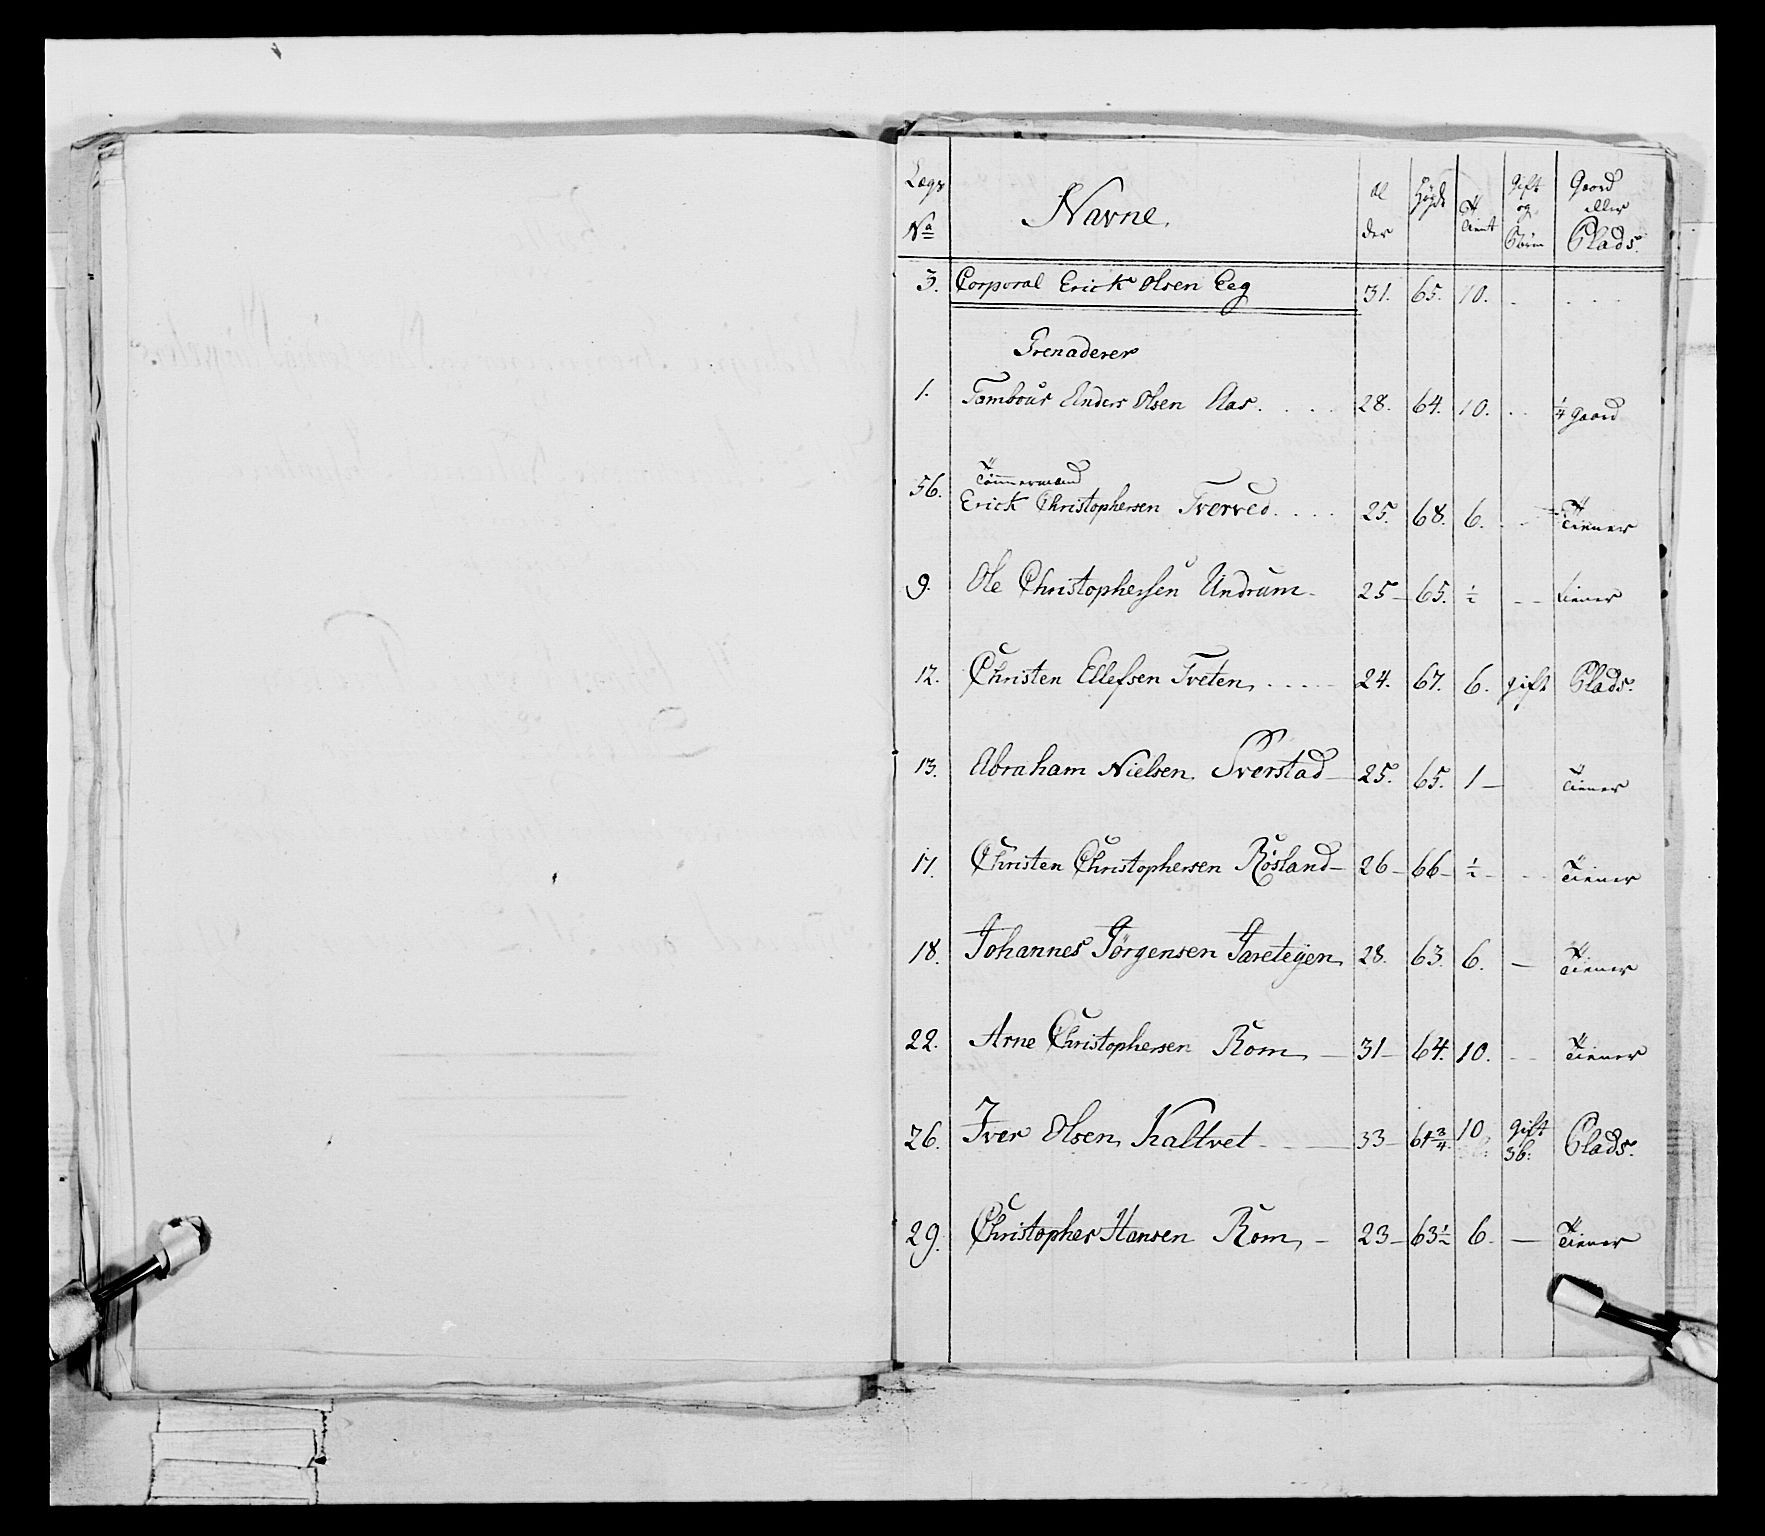 Lægs Nº Navne. Al der Høyde Tient Gift og Børn Gaard eller Plads.
3. Corporal Erick Olsen Eeg 31. 65. 10. . . . .
Grenaderer
1. Tambour Anders Olsen Aas. . . . 28. 64. 10. . . ¼ gaard
Tømmermand
56. Erick Christophersen Tverved. . . . 25. 68. 6. . . Tiener
9. Ole Christophersen Undrum - 25 - 65. ½ - - tiener
12. Christen Ellefsen Tveten, . . . . 24. 67. 6. gift Plads.
13. Abraham Nielsen Sverstad - 25. 65. 1 - Tiener
17. Christen Christophersen Røsland - 26 - 66 - ½ - - - Tiener
18. Johannes Jørgensen 28. 63. 6. - Tiener
22. Arne Christophersen Rom, - 31 - 64. 10. - - Tiener
26. Iver Olsen, Kaltvet - - 33 - 64¾. 10, gift 3b: Plads.
29. Christopher Hansen Rom, - 23 - 63½ 6. - Tiener